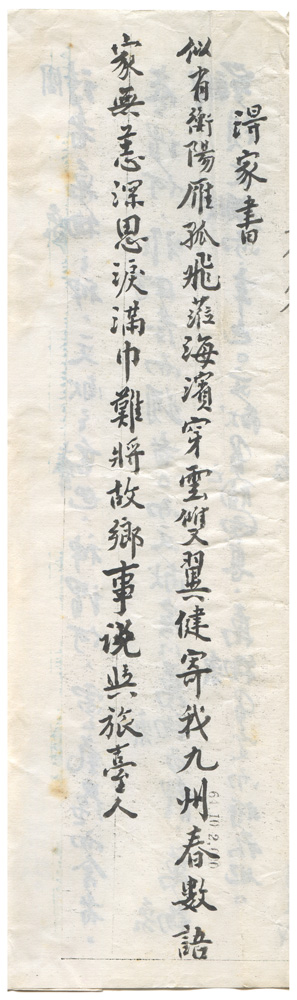 得家書
似有衡陽雁孤飛蒞海濱穿雲雙翼健寄我九州春數語
家無恙深恩淚滿巾難將故鄉事說與旅臺人